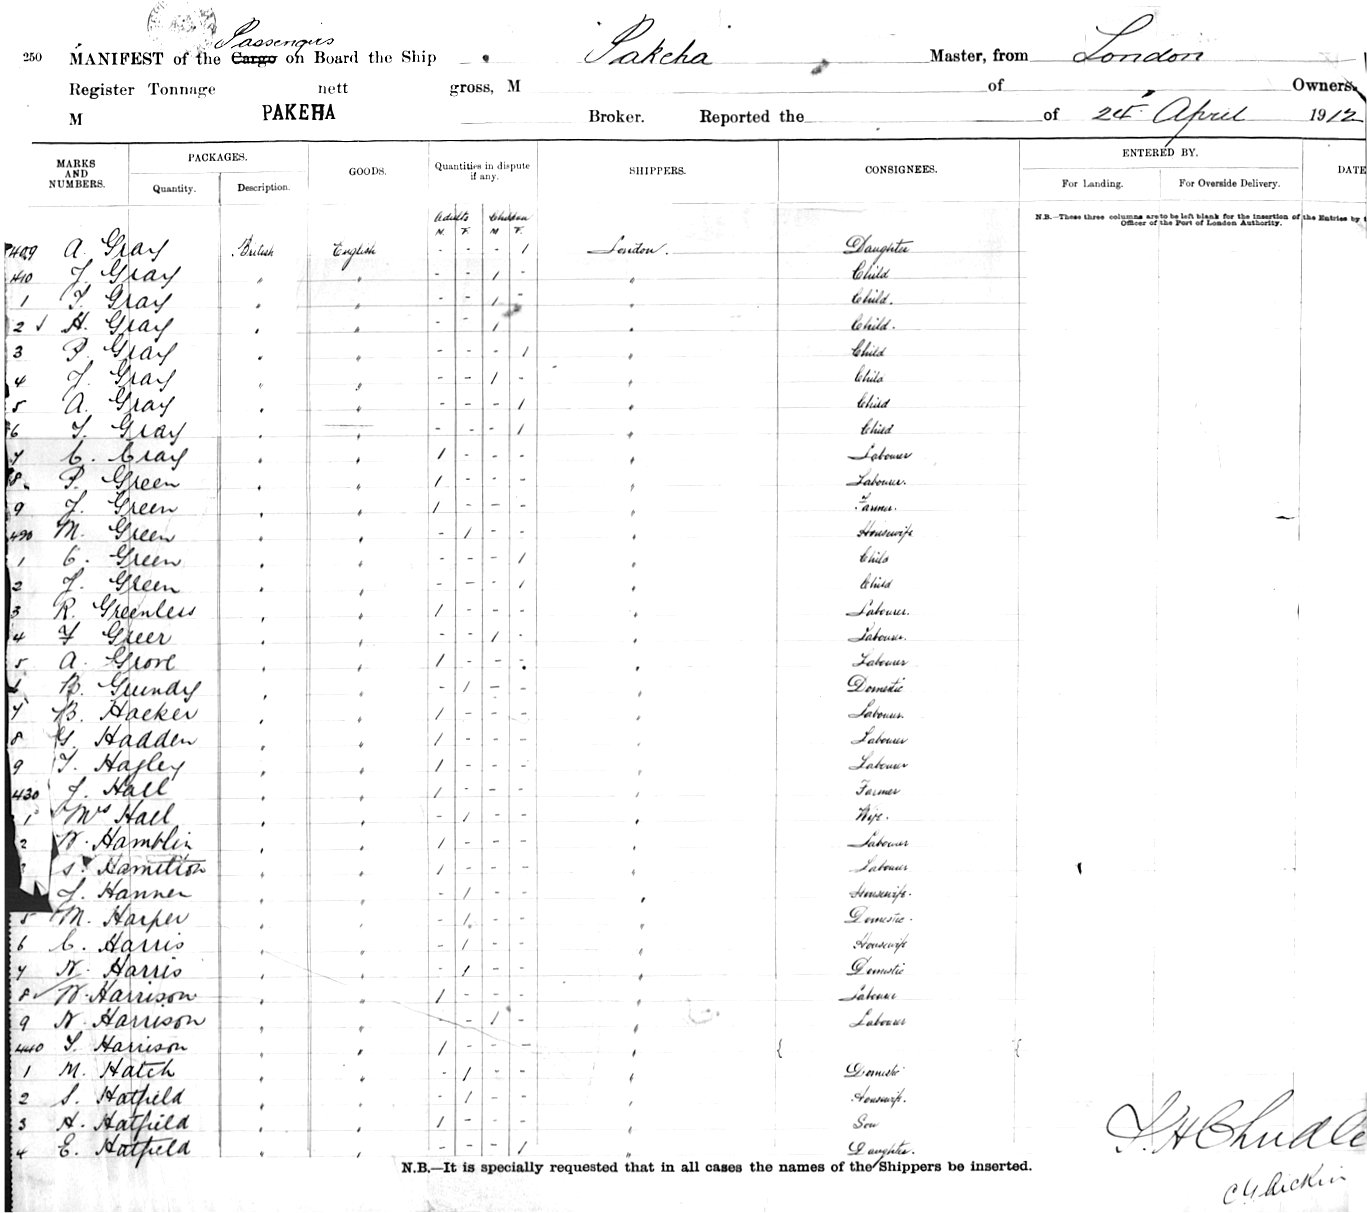 Passengers
250 MANIFEST of the Cargo on Board the Ship Pakeha Master, from London
Register Tonnage nett gross, M of Owners.
M PAKEHA Broker. Reported the of 24 April 1912
MARKS AND NUMBERS. PACKAGES. Quantity. Description. GOODS. Quantities in dispute if any. SHIPPERS. CONSIGNEES. ENTERED BY. For Landing. For Overside Delivery. DATE
N.B.—These three columns are to be left blank for the insertion of the Entries by
Officer of the Port of London Authority.
Adults Children
M F M F
409 A. Gray British English - - - 1 London. Daughter
410 Gray " " - - 1 - " Child
1 Gray " " - - 1 - " Child.
2 H. Gray " " - - 1 " Child.
3 Gray " " - - - 1 " Child
4 Gray " " - - 1 - " Child
5 A. Gray " " - - - 1 " Child
6 Gray " " - - - 1 " Child
7 C. Gray " " 1 - - - " Labourer
8 Green " " 1 - - - " Labourer.
9 Green " " 1 - - - " Farmer.
490 M. Green " " - 1 - - " Housewife
1 C. Green " " - - - 1 " Child
2 Green " " - - - 1 " Child
3 R. Greenless " " 1 - - - " Labourer.
4 F Greer " " - - 1 - " Labourer.
5 A. Grove " " 1 - - " Labourer
B. Grundy " " - 1 - - " Domestic
7 B. Hacker " " 1 - - - " Labourer.
8 G. Hadden " " 1 - - - " Labourer
9 Hagley " " 1 - - - " Labourer
430 Hall " " 1 - - - " Farmer
1 Mrs Hall " " - 1 - - " Wife.
2 W. Hamblin " " 1 - - - " Labourer
S. Hamilton " " 1 - - - " Labourer
Hanner " " - 1 - - " Housewife.
5 M. Harper " " - 1 - - " Domestic.
6 C. Harris " " - 1 - - " Housewife
7 N. Harris " " - 1 - - " Domestic
8 W. Harrison " " 1 - - - " Labourer
9 N. Harrison " " - - 1 - " Labourer
440 Harrison " " 1 - - - "
1 M. Hatch " " - 1 - - " Domestic
2 S. Hatfield " " - 1 - - " Housewife.
3 H. Hatfield " " 1 - - - " Son
4 E. Hatfield " " - - - 1 " Daughter.
N.B.—It is specially requested that in all cases the names of the Shippers be inserted.